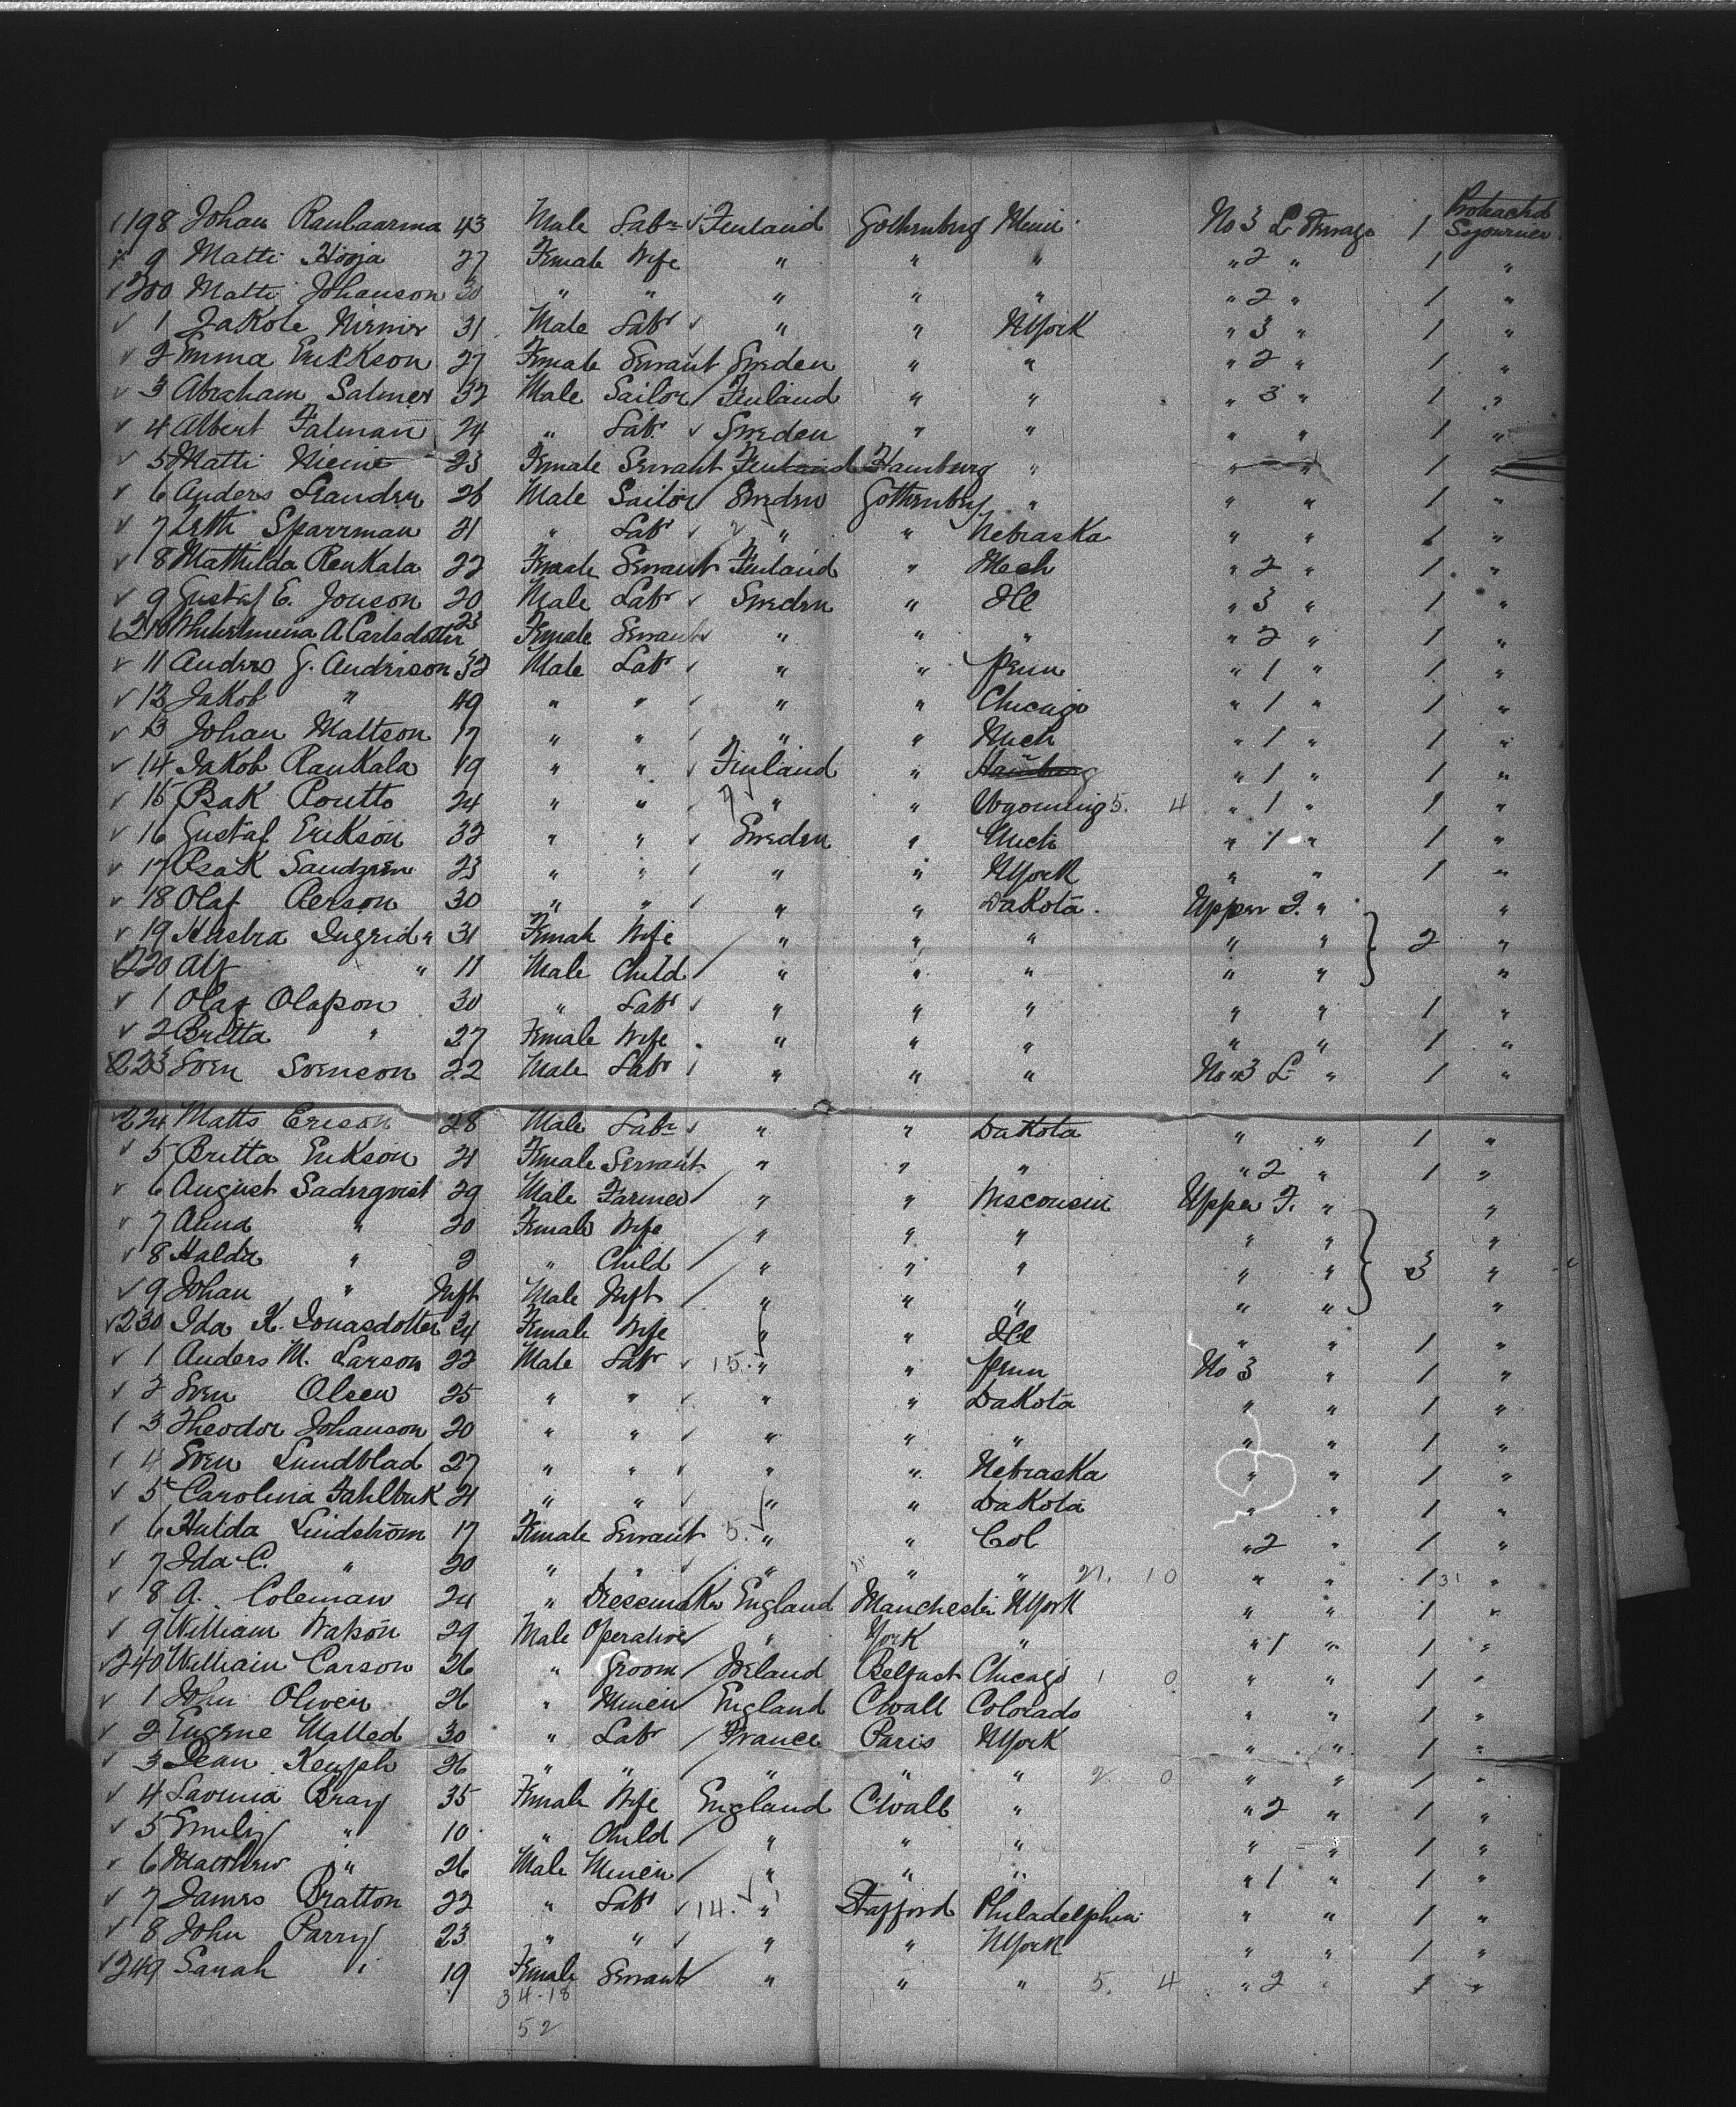 198 Johan Raubaarma 43 Male Labr Finland Gothenburg Minn No 3 L Steerage 1 Protracted Sojourner
9 Matti Hioja 27 Female Wife " " " " 2 " 1 "
200 Matti Johanson 30 " " " " " " 2 " 1 "
1 Jakob 31 Male Labr " " NYork " 3 " 1 "
2 Emma Erikson 27 Female Servant Sweden " " " 2 " 1 "
3 Abraham Salmer 32 Male Sailor Finland " " " 3 " 1 "
4 Albert Falman 24 " Labr Sweden " " " " 1 "
5 Matti Nieme 23 Female Servant Finland Hamburg " " " 1 "
6 Anders 26 Male Sailor Sweden Gothenburg " " " 1 "
7 Sparrman 21 " Labr " " Nebraska " " 1 "
8 Mathilda Renkala 22 Female Servant Finland " Mech " 2 " 1 "
9 Gustaf E. Jonson 20 Male Labr Sweden " Ill " 3 " 1 "
210 Whilelmina A Carlsdotter 23 Female Servant " " " " 2 " 1 "
11 Anders G. Anderson 32 Male Labr " " Penn " 1 " 1 "
12 Jakob " 49 " " " " Chicago " 1 " 1 "
13 Johan Mattson 17 " " " " Mich " 1 " 1 "
14 Jakob Raukala 19 " " Finland " Hamburg " 1 " 1 "
15 Isak Routto 24 " " " " Wyoming 5. 4 " 1 " 1 "
16 Gustaf Erikson 32 " " Sweden " Mich " 1 " 1 "
17 Isak Sandgren 23 " " " " NYork " " 1 "
18 Olaf Person 30 " " " " Dakota. Upper F. " "
19 Ingrid " 31 Female Wife " " " " " 2 "
220 Alf " 11 Male Child " " " " " "
1 Olaf Olafson 30 " Labr " " " " " 1 "
2 Britta " 27 Female Wife " " " " " 1 "
223 Sven Svenson 22 Male Labr " " " No 3 L " 1 "
224 Matts Ericson 28 Male Labr " " Dakota " " 1 "
5 Britta Erikson 21 Female Servant " " " " 2 " 1 "
6 August Saderqvist 29 Male Farmer " " Wisconsin Upper F. " "
7 Anna " 20 Female Wife " " " " " "
8 Halda " 2 " Child " " " " " 3 "
9 Johan " Inft Male Inft " " " " " "
230 Ida K. Jonasdotter 24 Female Wife " " Ill " " 1 "
1 Anders M. Larson 22 Male Labr 15. " " Penn No 3 " 1 "
2 Sven Olsen 25 " " " " Dakota " " 1 "
3 Theodor Johanson 20 " " " " " " " 1 "
4 Sven Lundblad 27 " " " " Nebraska " " 1 "
5 Carolina Fahlbuk 21 " " " " Dakota " " 1 "
6 Hulda Lindström 17 Female Servant 5. " " Col " 2 " 1 "
7 Ida C. " 20 " " " " " 21. 10 " " 1 31 "
8 A. Coleman 24 " Dressmaker England Manchester NYork " " 1 "
9 William Watson 29 Male Operative " York " " 1 " 1 "
240 William Carson 26 " Groom Ireland Belfast Chicago 1 0 " " 1 "
1 John Oliven 26 " Minen England Cwall Colorado " " 1 "
2 Eugene Malled 30 " Labr France Paris NYork " " 1 "
3 Dean Kenpeh 26 " " " " " 2 0 " " 1 "
4 Lavinia Bray 35 Female Wife England Cwall " " 2 " 1 "
5 Emily " 10 " Child " " " " " 1 "
6 Matthew " 26 Male Minen " " " " 1 " 1 "
7 James Bratton 22 " Labr 14. " Stafford Philadelphia " " 1 "
8 John Parry 23 " " " " NYork " " 1 "
249 Sarah " 19 Female Servant " " " 5. 4 " 2 " 1 "
34-18
52